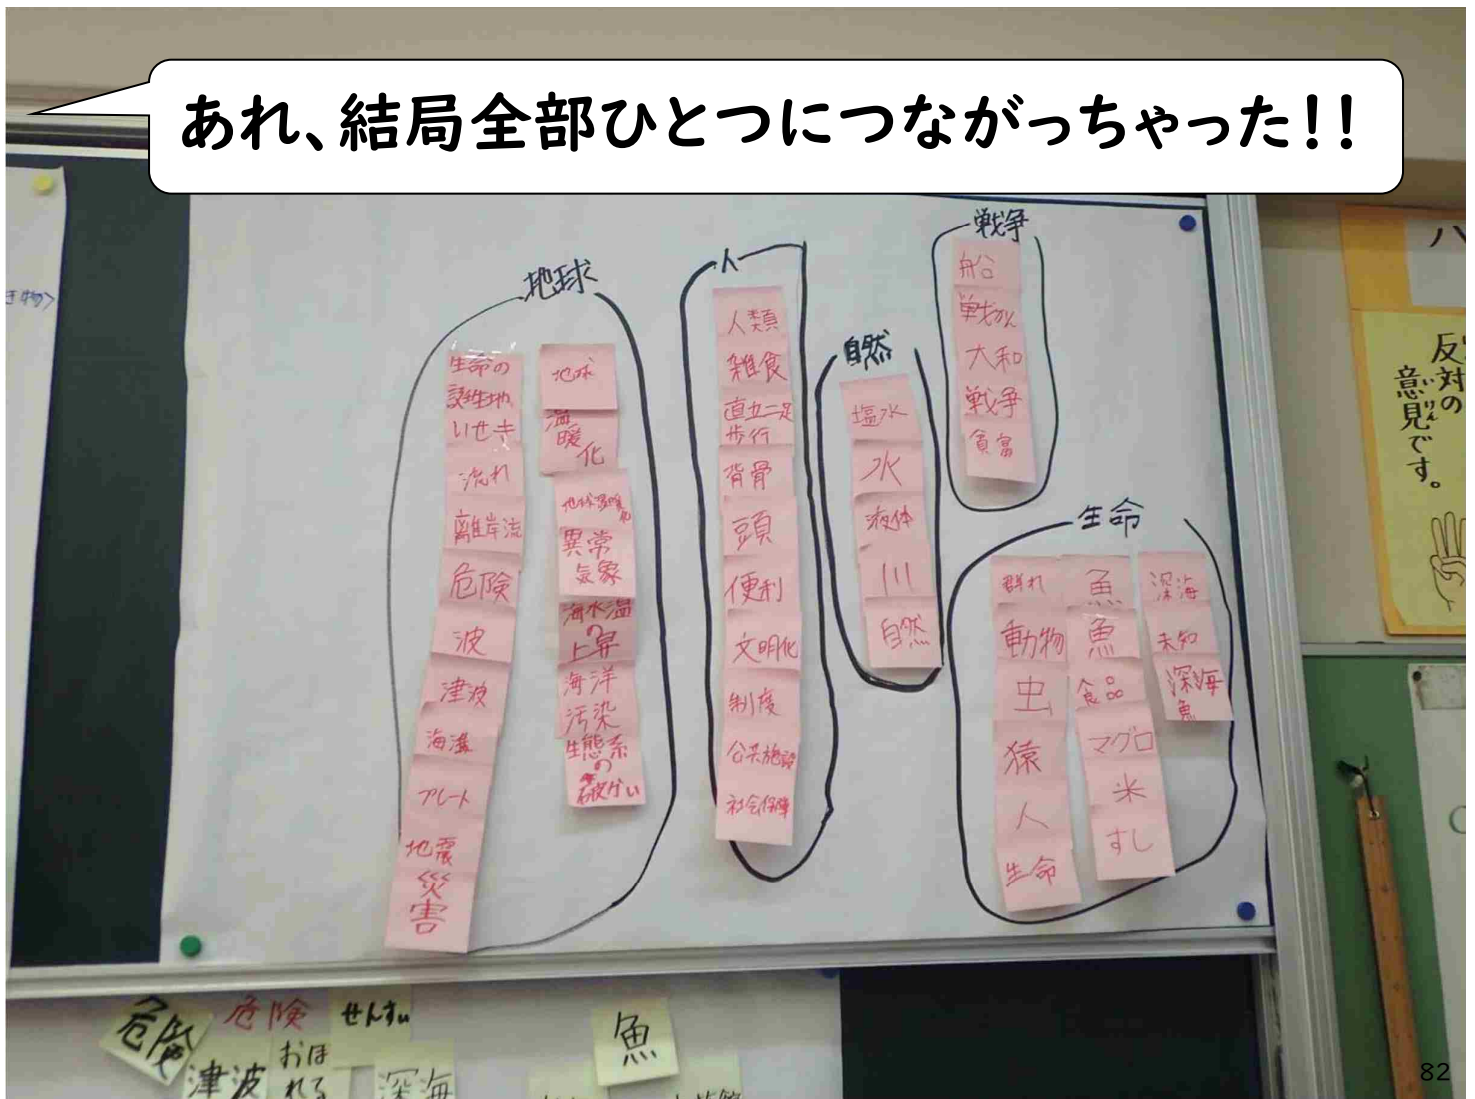 あれ、結局全部ひとつにつながっちゃった!!
き物>
地球
生命の
誕生地
いせき
流れ
離岸流
危険
波
津波
海溝
プレート
地震
災害
地球
温
暖
化
地球温暖化
異常
気象
海水温
の
上昇
海洋
汚染
生態系
の
破かい
人
人類
雑食
直立二足
歩行
背骨
頭
便利
文明化
制度
公共施設
社会保障
自然
塩水
水
液体
川
自然
戦争
船
戦かん
大和
戦争
貧富
生命
群れ
動物
虫
猿
人
生命
魚
魚
食品
マグロ
米
すし
深海
未知
深海
魚
ハ
反対の
意見です。
いけん
危険
危険
せんすい
津波
おぼ
れる
深海
魚
82